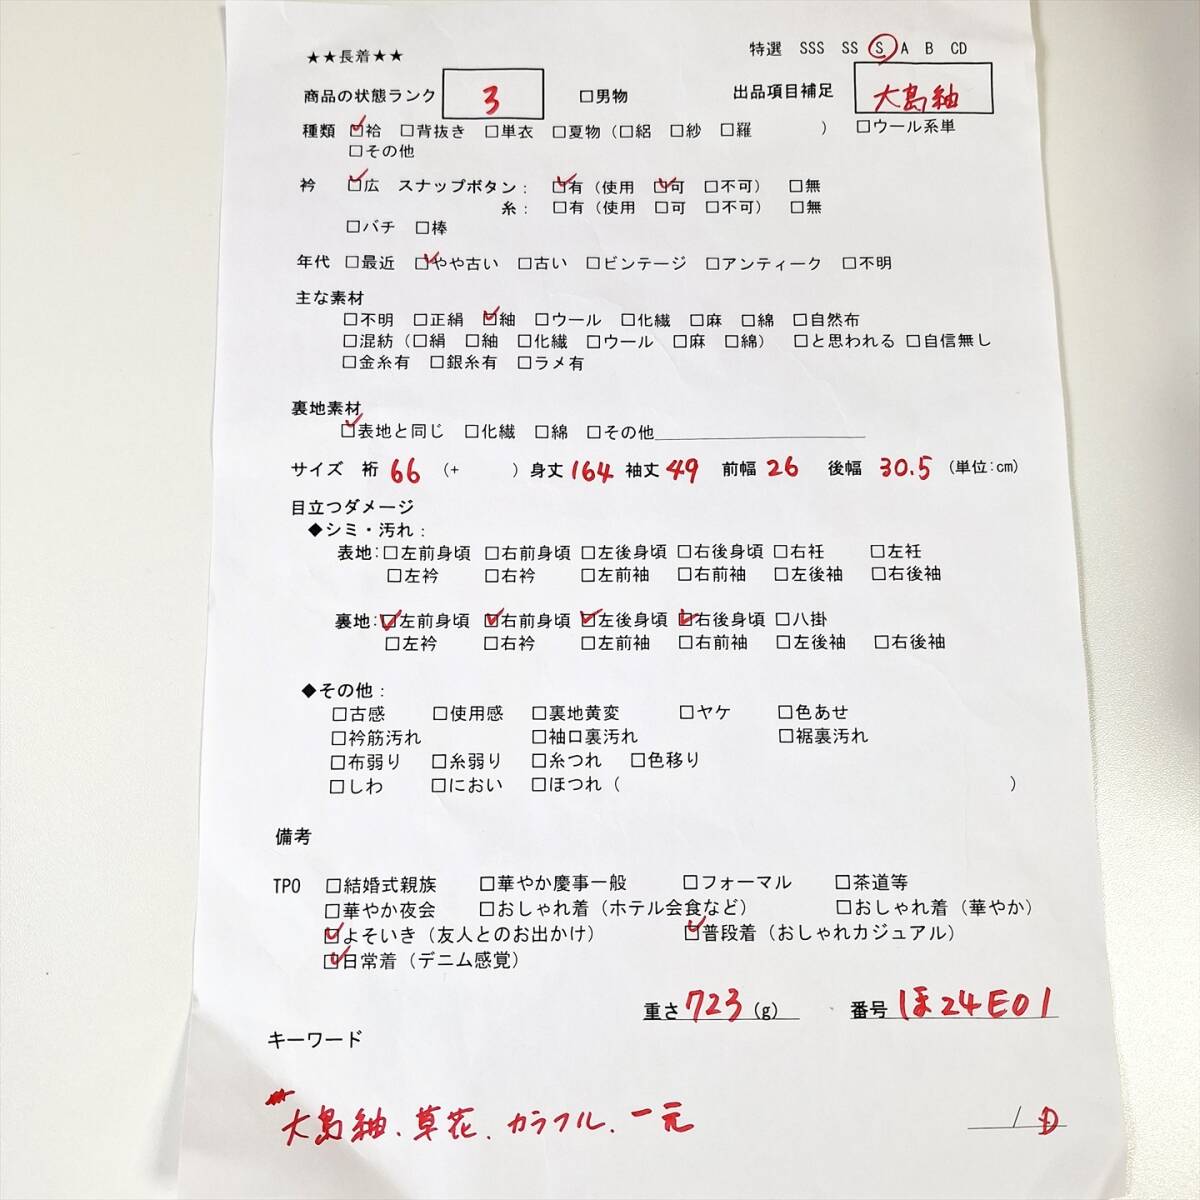 ★★長着★★ 特選 SSS SS S A B CD
商品の状態ランク 3 □男物 出品項目補足 大島紬
種類 ☑袷 □背抜き □単衣 □夏物（□絽 □紗 □羅 ） □ウール系単
□その他
衿 ☑広 スナップボタン： ☑有（使用 ☑可 □不可） □無
糸： □有（使用 □可 □不可） □無
□バチ □棒
年代 □最近 ☑やや古い □古い □ビンテージ □アンティーク □不明
主な素材
□不明 □正絹 ☑紬 □ウール □化繊 □麻 □綿 □自然布
□混紡（□絹 □紬 □化繊 □ウール □麻 □綿） □と思われる □自信無し
□金糸有 □銀糸有 □ラメ有
裏地素材
☑表地と同じ □化繊 □綿 □その他
サイズ 裄 66 （+ ）身丈 164 袖丈 49 前幅 26 後幅 30.5 （単位:cm）
目立つダメージ
◆シミ・汚れ：
表地:□左前身頃 □右前身頃 □左後身頃 □右後身頃 □右衽 □左衽
□左衿 □右衿 □左前袖 □右前袖 □左後袖 □右後袖
裏地:☑左前身頃 ☑右前身頃 ☑左後身頃 ☑右後身頃 □八掛
□左衿 □右衿 □左前袖 □右前袖 □左後袖 □右後袖
◆その他：
□古感 □使用感 □裏地黄変 □ヤケ □色あせ
□衿筋汚れ □袖口裏汚れ □裾裏汚れ
□布弱り □糸弱り □糸つれ □色移り
□しわ □におい □ほつれ（ ）
備考
TPO □結婚式親族 □華やか慶事一般 □フォーマル □茶道等
□華やか夜会 □おしゃれ着（ホテル会食など） □おしゃれ着（華やか）
☑よそいき（友人とのお出かけ） ☑普段着（おしゃれカジュアル）
☑日常着（デニム感覚）
重さ 723 (g) 番号 ほ24E01
キーワード
大島紬、草花、カラフル、一元
/ D